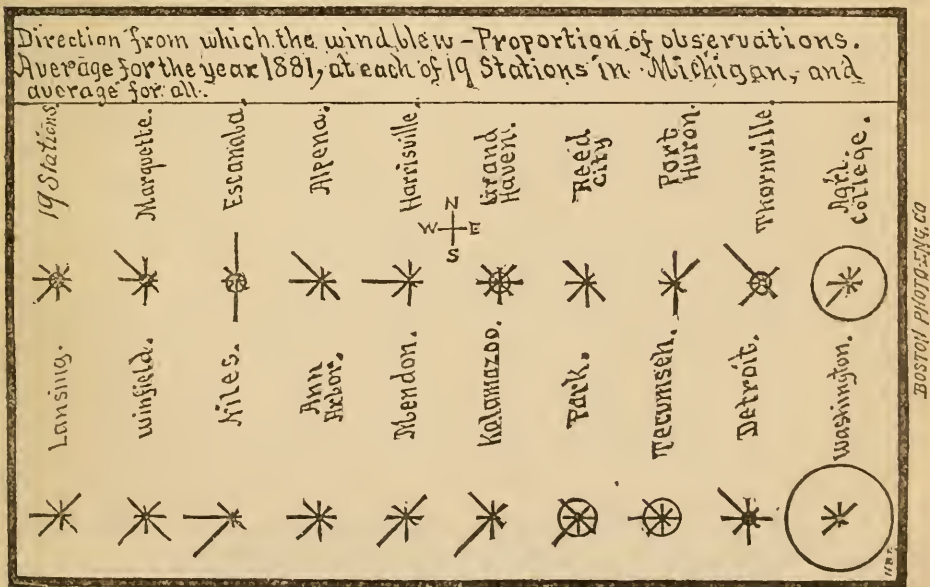 Direction from which the wind blew – Proportion of observations.
Average for the year 1881, at each of 19 Stations in Michigan, and
average for all.
19 Stations.
Marquette.
Escanaba.
Alpena.
Harrisville.
Grand
Haven.
Reed
City
Port
Huron.
Thornville.
Agrl.
College.
N
W E
S
Lansing.
Winfield.
Niles.
Ann
Arbor.
Mendon.
Kalamazoo.
Park.
Tecumseh.
Detroit.
Washington.
BOSTON PHOTO-ENG. CO